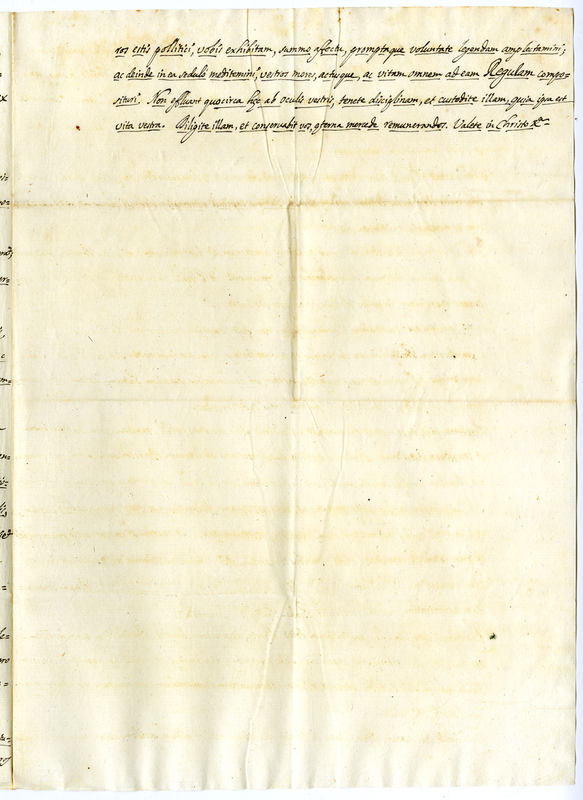 ros estis polliciti, vobis exhibitam, summo affectu, promptaque voluntate legendam amplectamini;
ac deinde in ea sedulò meditemini, vestros mores, actusque, ac vitam omnem ad eam Regulam compo=
situri. Non effluant quocirca hęc, ab oculis vestris, tenete disciplinam, et custodite illam, quia ipsa est
vita vestra. Diligite illam, et conservabit vos, ęterna mercede remunerandos. Valete in Christo